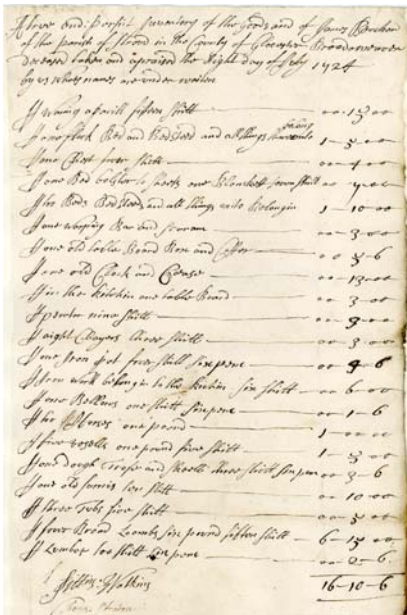 A true and perfit Inventory of the goods and of James
of the parish of Stroud in the County of Glocester Broadweaver
deseased taken and apraised the Eight day of July 1724
by us whose names are under writen
It wering aparill fiften shill 00 - 15 - 00
It one flock Bed and Bedsteed and all things belong 1 - 5 - 00
It one Chest four shill 00 - 4 - 00
It one Bed bolster to sheets one Blankett seven shill 00 - 7 - 00
It two Beds Bedsteed and all things unto Belongin 1 - 10 - 00
It one warping Bar and 00 - 3 - 00
It one old table Board Box and Coffer 00 - 5 - 6
It one old Clock and 00 - 13 - 00
It in the kitchin one table Board 00 - 3 - 00
It pewter nine shill 00 - 9 - 00
It aight Chayers three shill 00 - 3 - 00
It one Iron pot four shill sixpence 00 - 4 - 6
It Iron work belongin to the kichin six shill 00 - 6 - 00
It one Bellows one shill sixpenc 00 - 1 - 6
It two Horses one pound 1 - 00 - 00
It five vesells one pound five shill 1 - 5 - 00
It one dough and three shill sixpenc 00 - 3 - 6
It one old ten shill 00 - 10 - 00
It three Tubs five shill 00 - 5 - 00
It four Broad Loombs six pound fiften shill 6 - 15 - 00
It Lumber too shill sixpenc 00 - 2 - 6
16 - 10 - 6
Watkins